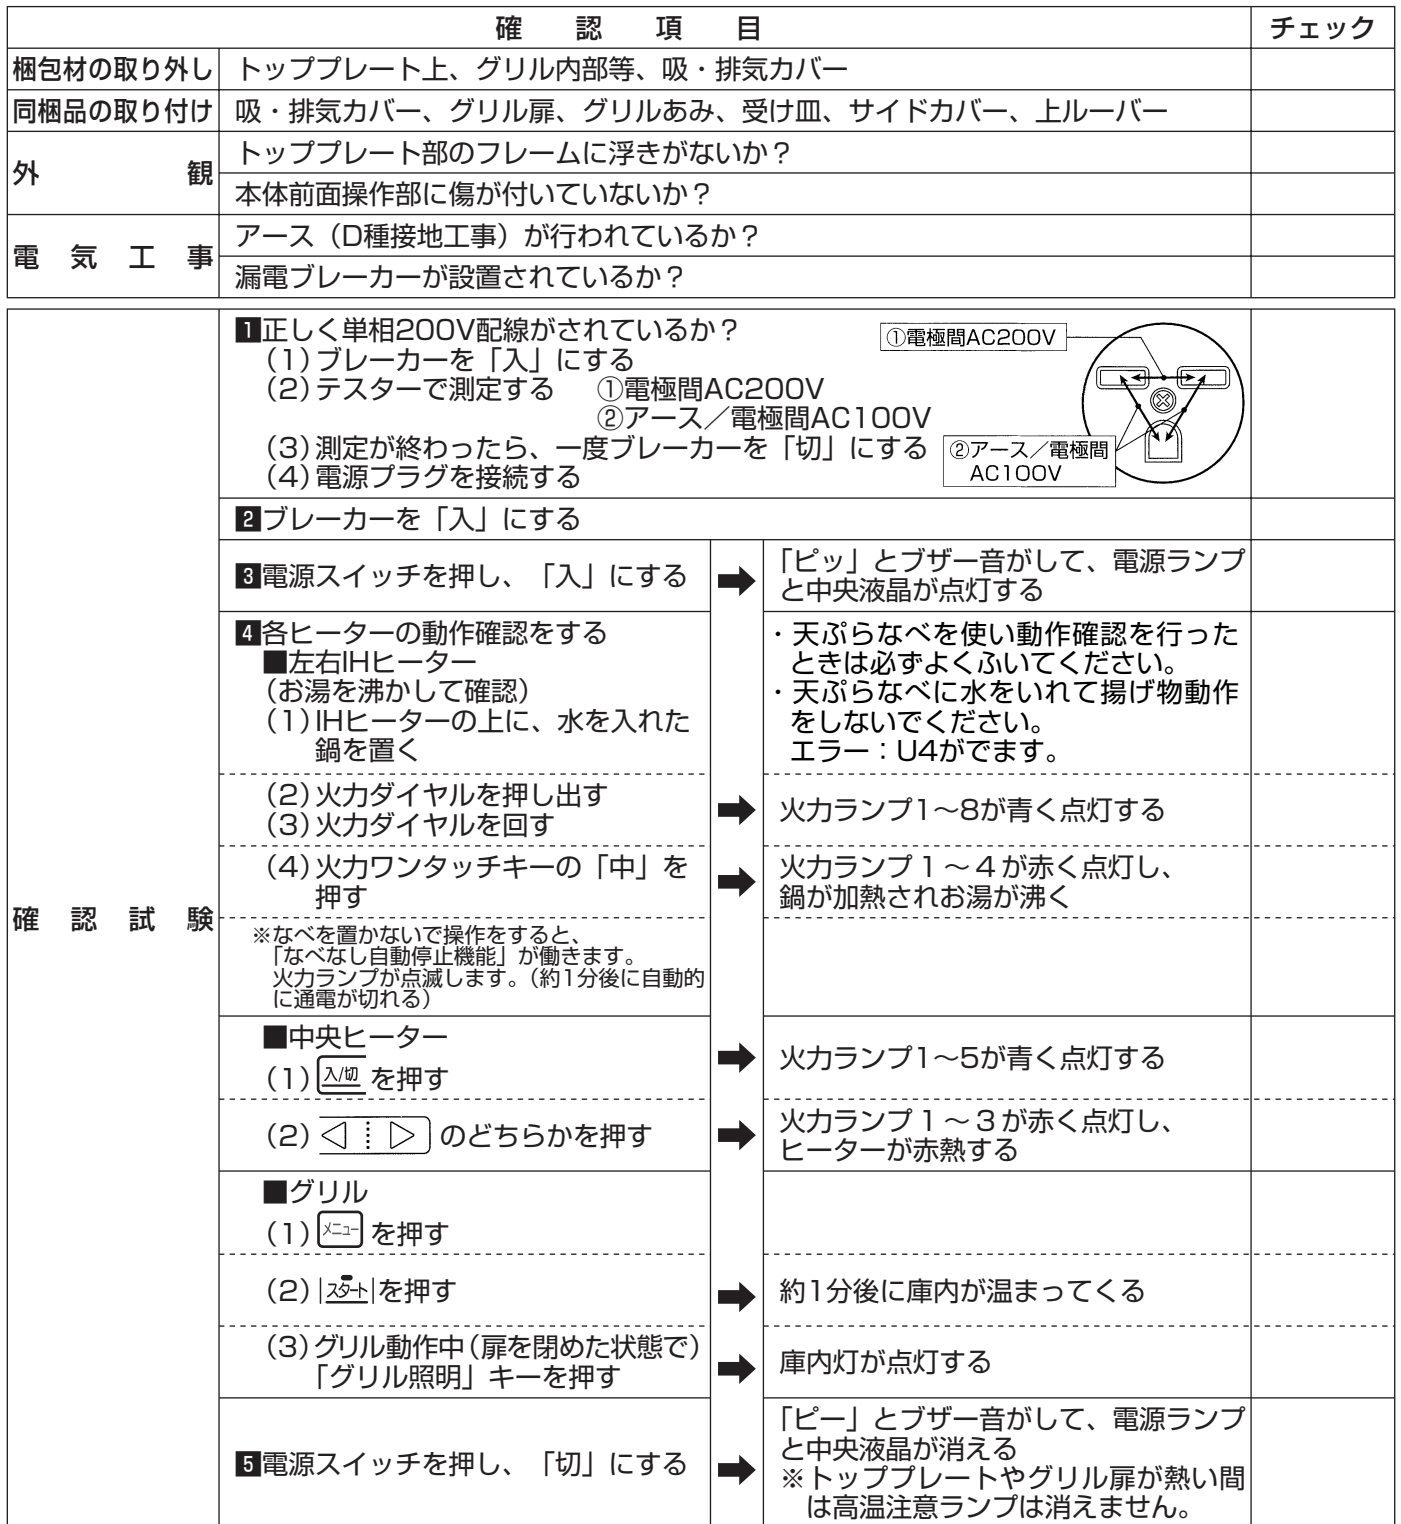 確認項目 チェック
梱包材の取り外し トッププレート上、グリル内部等、吸・排気カバー
同梱品の取り付け 吸・排気カバー、グリル扉、グリルあみ、受け皿、サイドカバー、上ルーバー
外観
トッププレート部のフレームに浮きがないか？
本体前面操作部に傷が付いていないか？
電気工事
アース（D種接地工事）が行われているか？
漏電ブレーカーが設置されているか？
確認試験
1正しく単相200V配線がされているか？
（1）ブレーカーを「入」にする
（2）テスターで測定する ①電極間AC200V
②アース／電極間AC100V
（3）測定が終わったら、一度ブレーカーを「切」にする
（4）電源プラグを接続する
①電極間AC200V
②アース／電極間
AC100V
2ブレーカーを「入」にする
3電源スイッチを押し、「入」にする
「ピッ」とブザー音がして、電源ランプ
と中央液晶が点灯する
4各ヒーターの動作確認をする
■左右IHヒーター
（お湯を沸かして確認）
（1）IHヒーターの上に、水を入れた
鍋を置く
・天ぷらなべを使い動作確認を行った
ときは必ずよくふいてください。
・天ぷらなべに水をいれて揚げ物動作
をしないでください。
エラー：U4がでます。
（2）火力ダイヤルを押し出す
（3）火力ダイヤルを回す
火力ランプ1〜8が青く点灯する
（4）火力ワンタッチキーの「中」を
押す
火力ランプ1〜4が赤く点灯し、
鍋が加熱されお湯が沸く
※なべを置かないで操作をすると、
「なべなし自動停止機能」が働きます。
火力ランプが点滅します。（約1分後に自動的
に通電が切れる）
■中央ヒーター
（1）入/切 を押す
火力ランプ1〜5が青く点灯する
（2）◁ ▷ のどちらかを押す
火力ランプ1〜3が赤く点灯し、
ヒーターが赤熱する
■グリル
（1）メニュー を押す
（2）スタート を押す
約1分後に庫内が温まってくる
（3）グリル動作中（扉を閉めた状態で）
「グリル照明」キーを押す
庫内灯が点灯する
5電源スイッチを押し、「切」にする
「ピー」とブザー音がして、電源ランプ
と中央液晶が消える
※トッププレートやグリル扉が熱い間
は高温注意ランプは消えません。